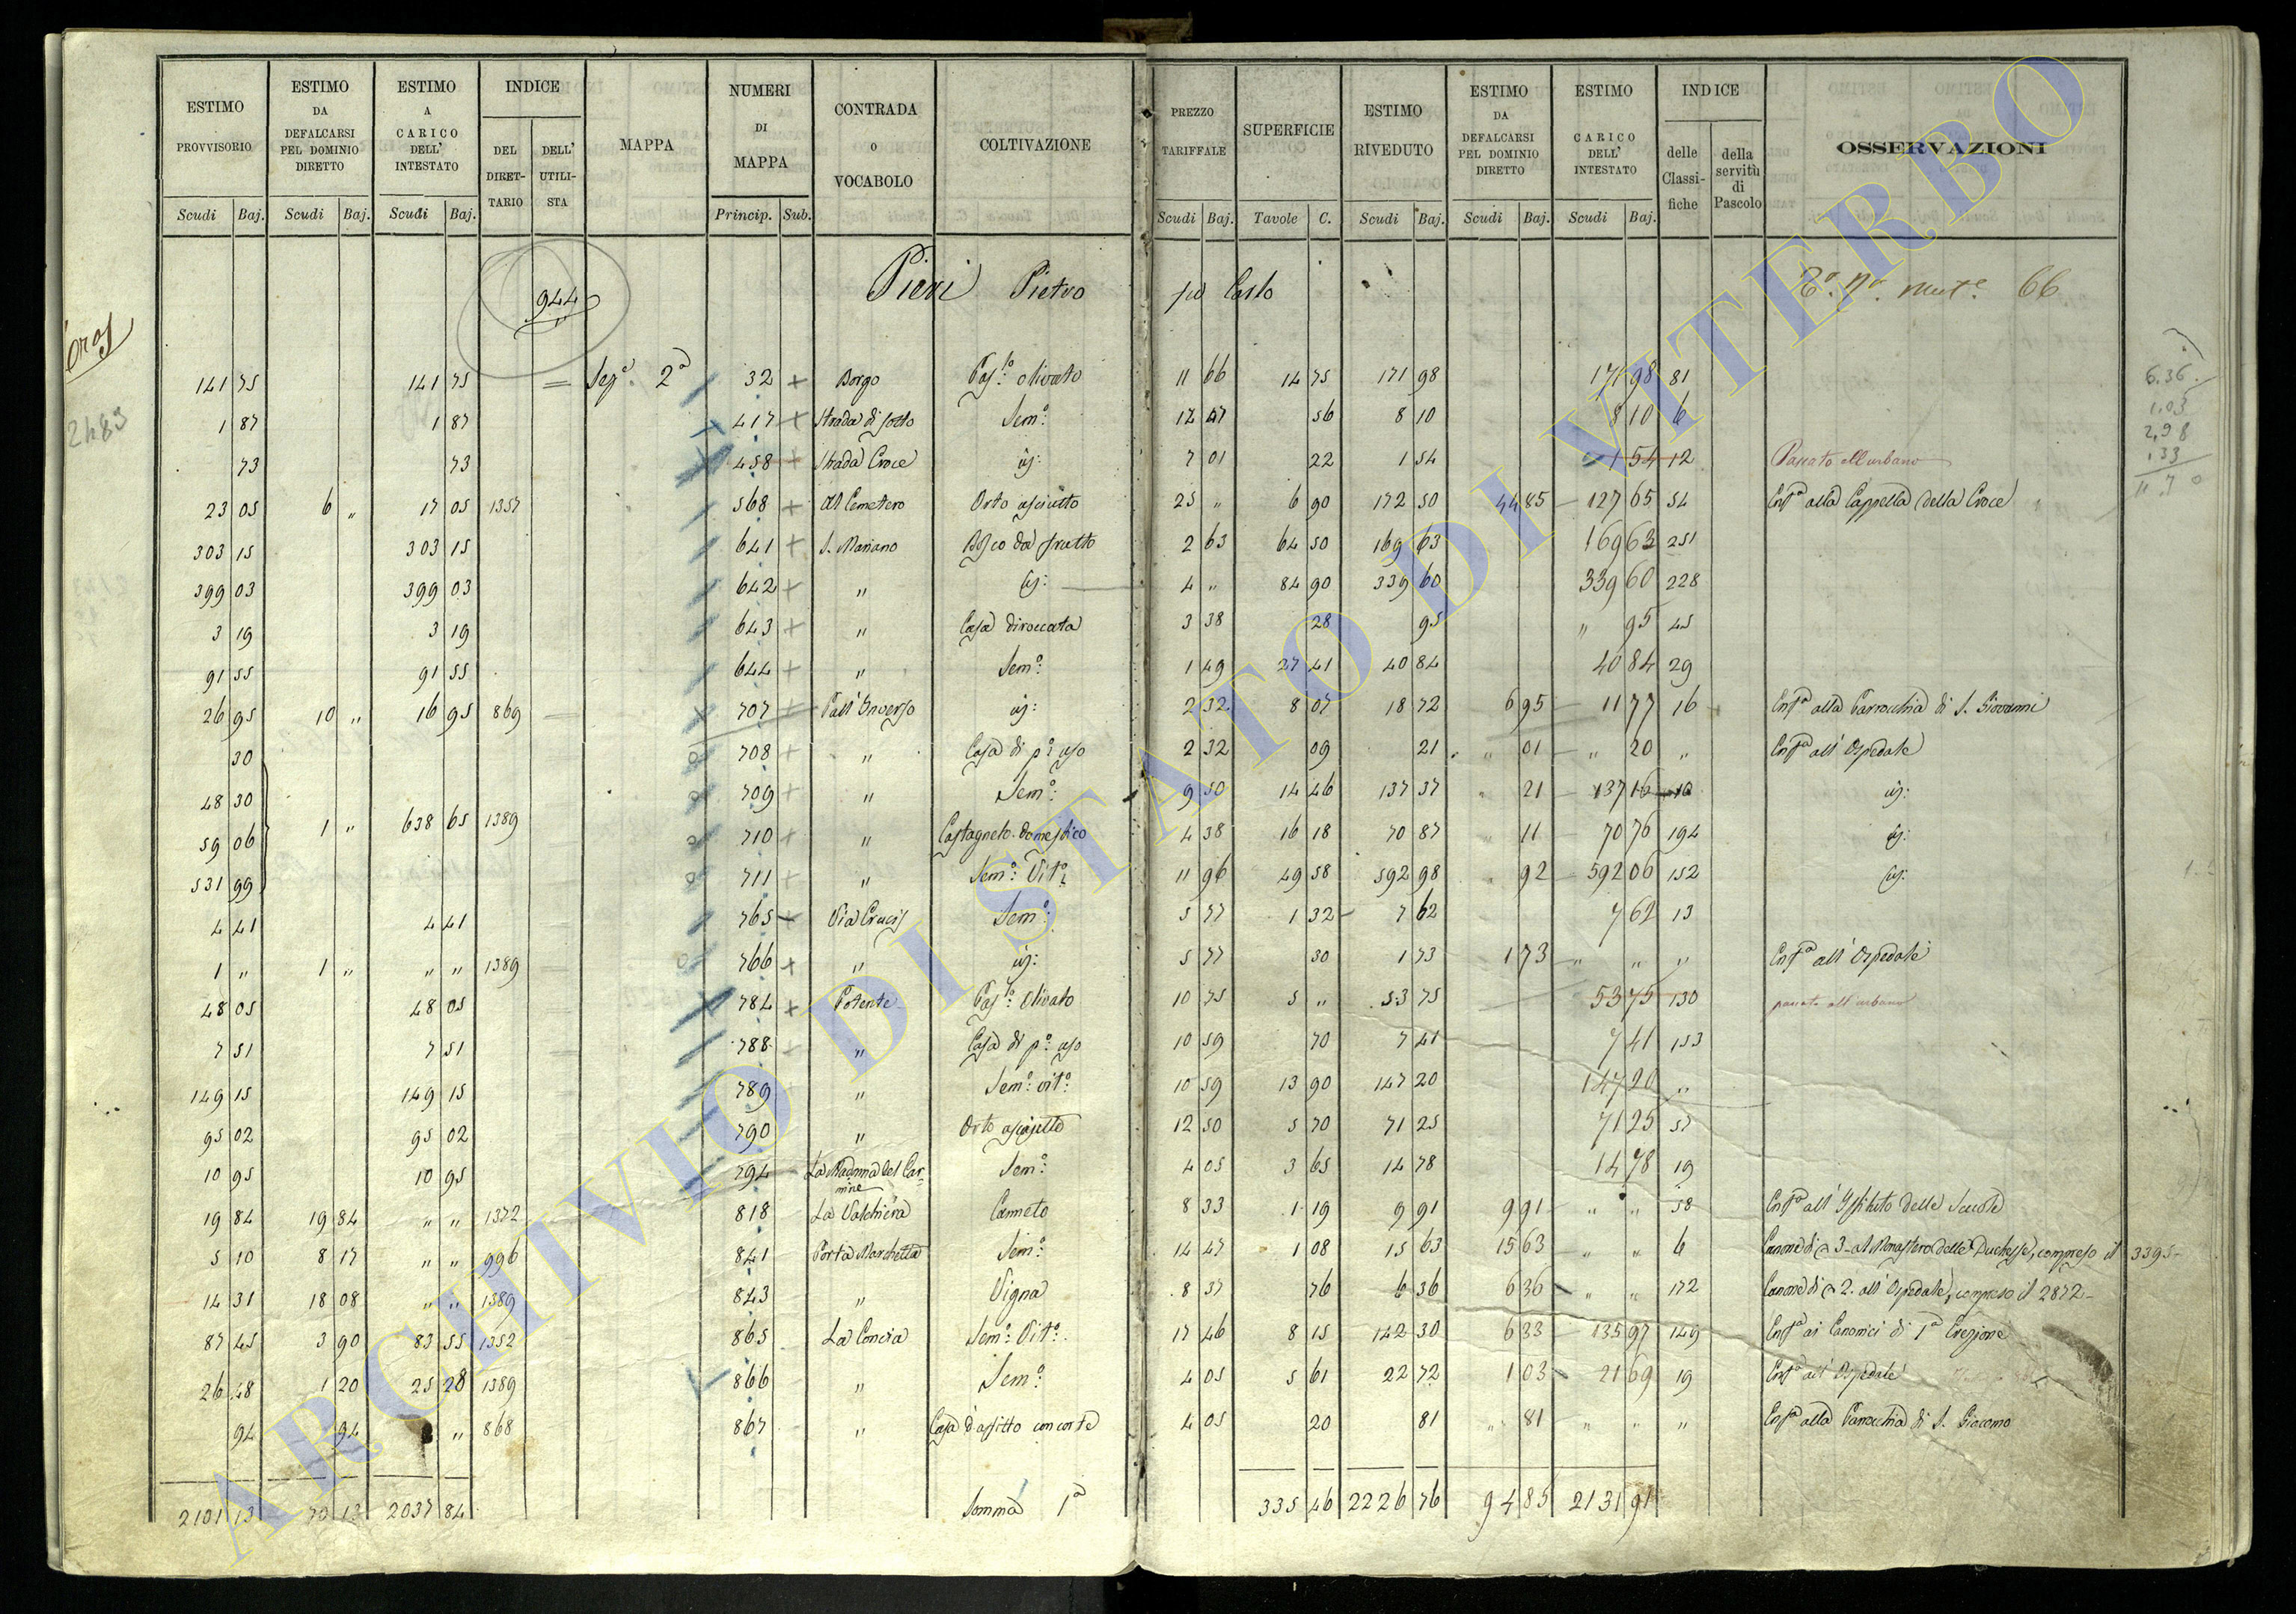 ESTIMO PROVVISORIO | ESTIMO DA DEFALCARSI PEL DOMINIO DIRETTO | ESTIMO A CARICO DELL' INTESTATO | INDICE | MAPPA | NUMERI DI MAPPA | CONTRADA O VOCABOLO | COLTIVAZIONE | PREZZO TARIFFALE | SUPERFICIE | ESTIMO RIVEDUTO | ESTIMO DA DEFALCARSI PEL DOMINIO DIRETTO | ESTIMO A CARICO DELL' INTESTATO | INDICE | OSSERVAZIONI
DEL DIRETTARIO | DELL' UTILISTA | delle Classifiche | della servitù di Pascolo
Scudi Baj. | Scudi Baj. | Scudi Baj. | Princip. Sub. | Scudi Baj. | Tavole C. | Scudi Baj. | Scudi Baj. | Scudi Baj.
944 Pieri Pietro fu Carlo 66
141 75 | 141 75 | Sez.e 2a | 32 + | Borgo | Pas.o olivato | 11 66 | 14 75 | 171 98 | 171 98 | 81
1 87 | 1 87 | 417 + | Strada di sotto | Sem.o | 14 47 | 56 | 8 10 | 8 10 | 6
73 | 73 | 458 + | Strada Croce | id: | 7 01 | 22 | 1 54 | 1 54 | 12 | Passato all'urbano
23 05 | 6 " | 17 05 | 1357 | 568 + | Al Cemetero | Orto asciutto | 25 " | 6 90 | 172 50 | 44 85 | 127 65 | 54 | Enf.a alla Cappella della Croce
303 15 | 303 15 | 641 + | S. Mariano | Bosco da frutto | 2 63 | 64 50 | 169 63 | 169 63 | 251
399 03 | 399 03 | 642 + | " | id: | 4 " | 84 90 | 339 60 | 339 60 | 228
3 19 | 3 19 | 643 + | " | Casa diroccata | 3 38 | 28 | 95 | " 95 | 45
91 55 | 91 55 | 644 + | " | Sem.o | 1 49 | 27 41 | 40 84 | 40 84 | 29
26 95 | 10 " | 16 95 | 869 | 707 + | Vall'Inverso | id: | 2 32 | 8 07 | 18 72 | 6 95 | 11 77 | 16 | Enf.a alla Parrocchia di S. Giovanni
30 | 708 + | " | Casa di p.o uso | 2 32 | 09 | 21 | " 01 | " 20 | " | Enf.a all'Ospedale
48 30 | 709 + | " | Sem.o | 9 50 | 14 46 | 137 37 | 21 | 137 16 | 10 | id:
59 06 | 1 " | 638 65 | 1389 | 710 + | " | Castagneto domestico | 4 38 | 16 18 | 70 87 | 11 | 70 76 | 194 | id:
531 99 | 711 + | " | Sem.o Vit.o | 11 96 | 49 58 | 592 98 | 92 | 592 06 | 152 | id:
4 41 | 4 41 | 765 + | Via Crucis | Sem.o | 5 77 | 1 32 | 7 62 | 7 62 | 13
1 " | 1 " | " " | 1389 | 766 + | " | id: | 5 77 | 30 | 1 73 | 1 73 | " " | " | Enf.a all'Ospedale
48 05 | 48 05 | 784 + | Potente | Pas.o Olivato | 10 75 | 5 " | 53 75 | 53 75 | 130 | passato all'urbano
7 51 | 7 51 | 788 | " | Casa di p.o uso | 10 59 | 70 | 7 41 | 7 41 | 153
149 15 | 149 15 | 789 | " | Sem.o vit.o | 10 59 | 13 90 | 147 20 | 147 20 | "
95 02 | 95 02 | 790 | " | Orto asciutto | 12 50 | 5 70 | 71 25 | 71 25 | 57
10 95 | 10 95 | 794 | La Madonna del Carmine | Sem.o | 4 05 | 3 65 | 14 78 | 14 78 | 19
19 84 | 19 84 | " " | 1372 | 818 | La Valchiera | Canneto | 8 33 | 1 19 | 9 91 | 9 91 | " " | 58 | Enf.a all'Istituto delle Scuole
5 10 | 8 17 | " " | 996 | 841 | Porta Marchetta | Sem.o | 14 47 | 1 08 | 15 63 | 15 63 | " " | 6 | Canone di 3- al Monastero delle Duchesse, compreso il 3395-
14 31 | 18 08 | " " | 1389 | 843 | " | Vigna | 8 37 | 76 | 6 36 | 6 36 | " " | 172 | Canone di 2. all'Ospedale, compreso il 2872-
87 45 | 3 90 | 83 55 | 1352 | 865 | La Concia | Sem.o Vit.o | 17 46 | 8 15 | 142 30 | 6 33 | 135 97 | 149 | Enf.a ai Canonici di 1a Erezione
26 48 | 1 20 | 25 28 | 1389 | 866 | " | Sem.o | 4 05 | 5 61 | 22 72 | 1 03 | 21 69 | 19 | Enf.a all'Ospedale
94 | 94 | " | 868 | 867 | " | Casa d'affitto con corte | 4 05 | 20 | 81 | " 81 | " " | " | Enf.a alla Parrocchia di S. Giacomo
2101 13 | 70 13 | 2037 84 | Somma 1a | 335 46 | 2226 76 | 94 85 | 2131 91
2483
6.36
1.03
2,98
.33
ARCHIVIO DI STATO DI VITERBO